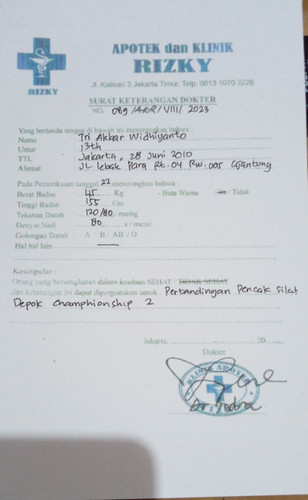 APOTEK dan KLINIK
RIZKY
RIZKY
Jl. Kalisari 3 Jakarta Timur, Telp. 0813 1070 2226
SURAT KETERANGAN DOKTER
NO. 089 /AKR/ VIII/ 2023
Yang bertanda tangan di bawah ini menerangkan bahwa :
Nama : Tri Akbar Widhiyanto
Umur : 13th
TTL : Jakarta, 28 Juni 2010
Alamat : JL lebak Para Rt. 04 RW. 005 Cijantung
Pada Pemeriksaan tanggal 22 menerangkan bahwa :
Berat Badan : 45 Kg - Buta Warna : / Tidak
Tinggi Badan : 155 Cm
Tekanan Darah : 120/80 mmhg
Denyut Nadi : 80 x / menit
Golongan Darah : A / B / AB / O
Hal hal lain :
Kesimpulan :
Orang yang bersangkutan dalam keadaan SEHAT / TIDAK SEHAT
dan keterangan ini dapat dipergunakan untuk Pertandingan Pencak Silat
Depok Champhionship 2
Jakarta, 20
Dokter
KLINIK APOTEK